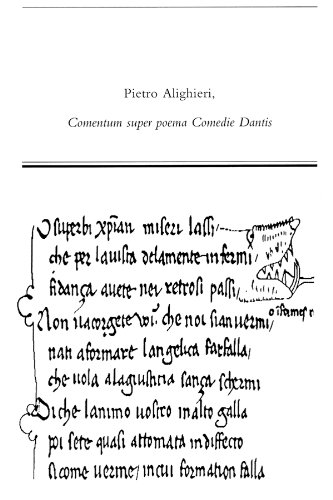 Pietro Alighieri,
Comentum super poema Comedie Dantis
O superbi xpian miseri lassi
che per la uista dela mente infermi
fidança auete nei retrosi passi
Non uacorgete uoi che noi sian uermi
nati aformare langelica farfalla
che uola alagiustitia sança schermi
Di che lanimo uostro inalto galla
poi sete quasi attomata indiffecto
sicome uerme in cui formation falla